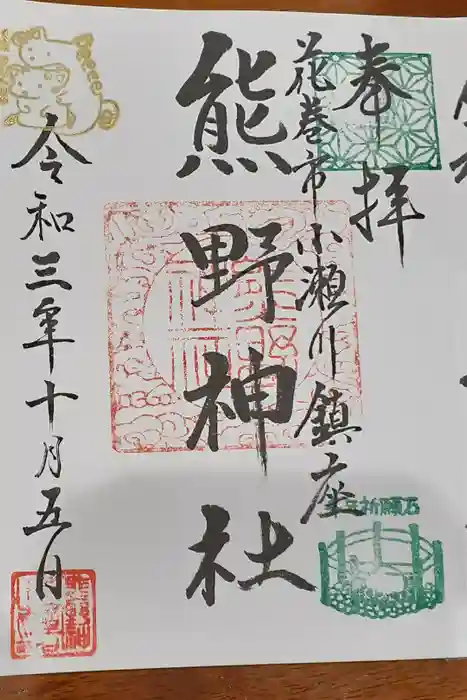 奉拝
花巻市小瀬川鎮座
熊野神社
令和三年十月五日
祈願石